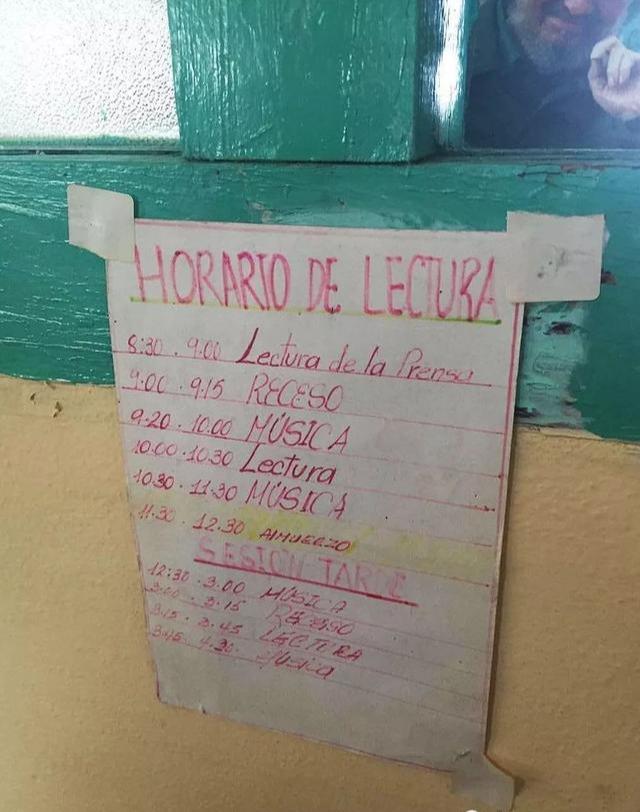 HORARIO DE LECTURA
8:30 . 9:00 Lectura de la Prensa
9:00 . 9:15 RECESO
9:20 . 10:00 MÚSICA
10:00 . 10:30 Lectura
10:30 . 11:30 MÚSICA
11:30 . 12:30 AlMUERZO
SESIÓN TARDE
12:30 . 3:00 MÚSICA
3:00 . 3:15 RECESO
3:15 . 3:45 LECTURA
3:45 . 4:30 Música